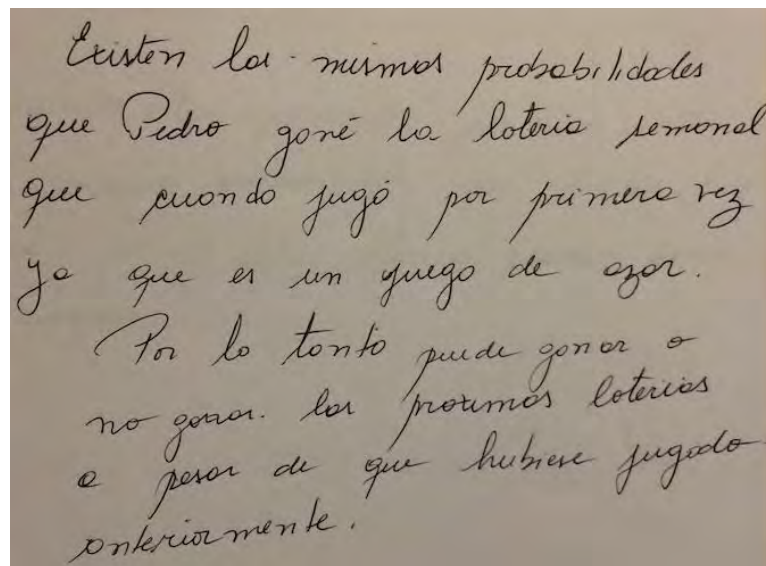 Existen las mismas probabilidades
que Pedro gané la loteria semanal
que cuando jugó por primera vez
ya que es un juego de azar.
Por lo tanto puede ganar o
no ganar. las proximas loterias
a pesar de que hubiese jugado
anteriormente.